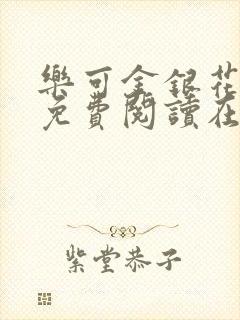 樂可金銀花
免費閱讀在
紫堂恭子